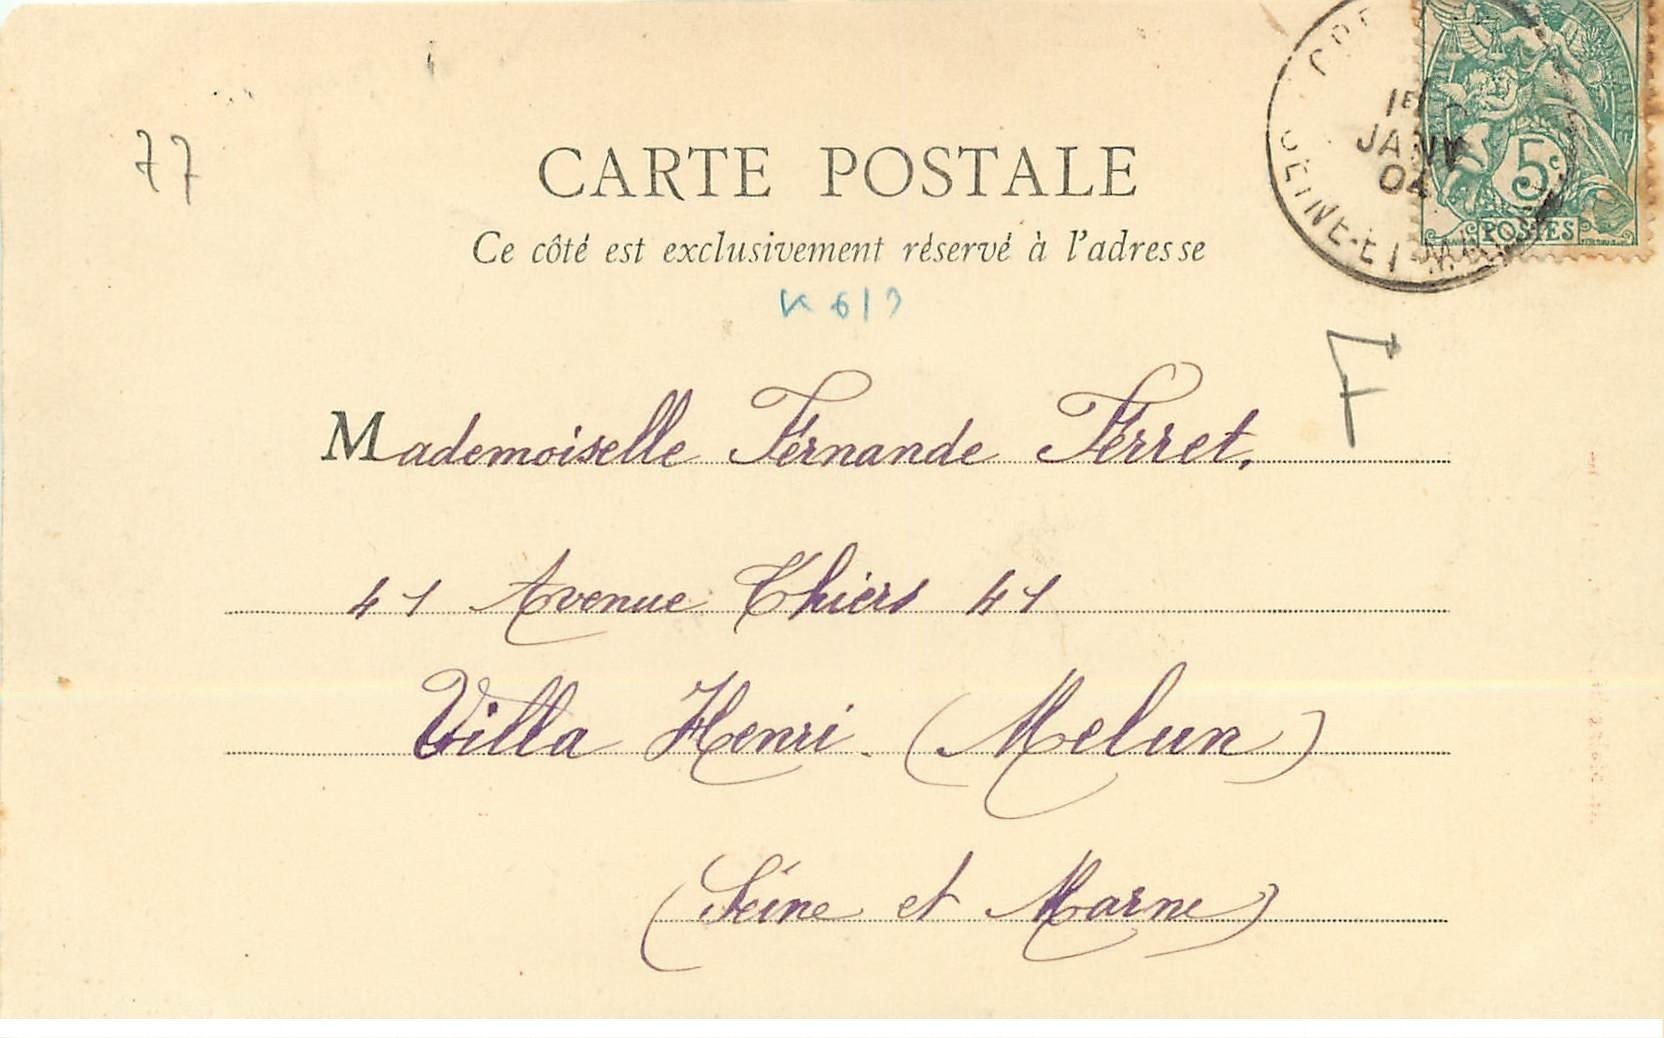 77
CARTE POSTALE
Ce côté est exclusivement réservé à l'adresse
K 613
1ER
JANV
04
SEINE-ET-M
5c
POSTES
7
Mademoiselle Fernande Ferret,
41 Avenue Thiers 41
Villa Henri (Melun)
(Seine et Marne)